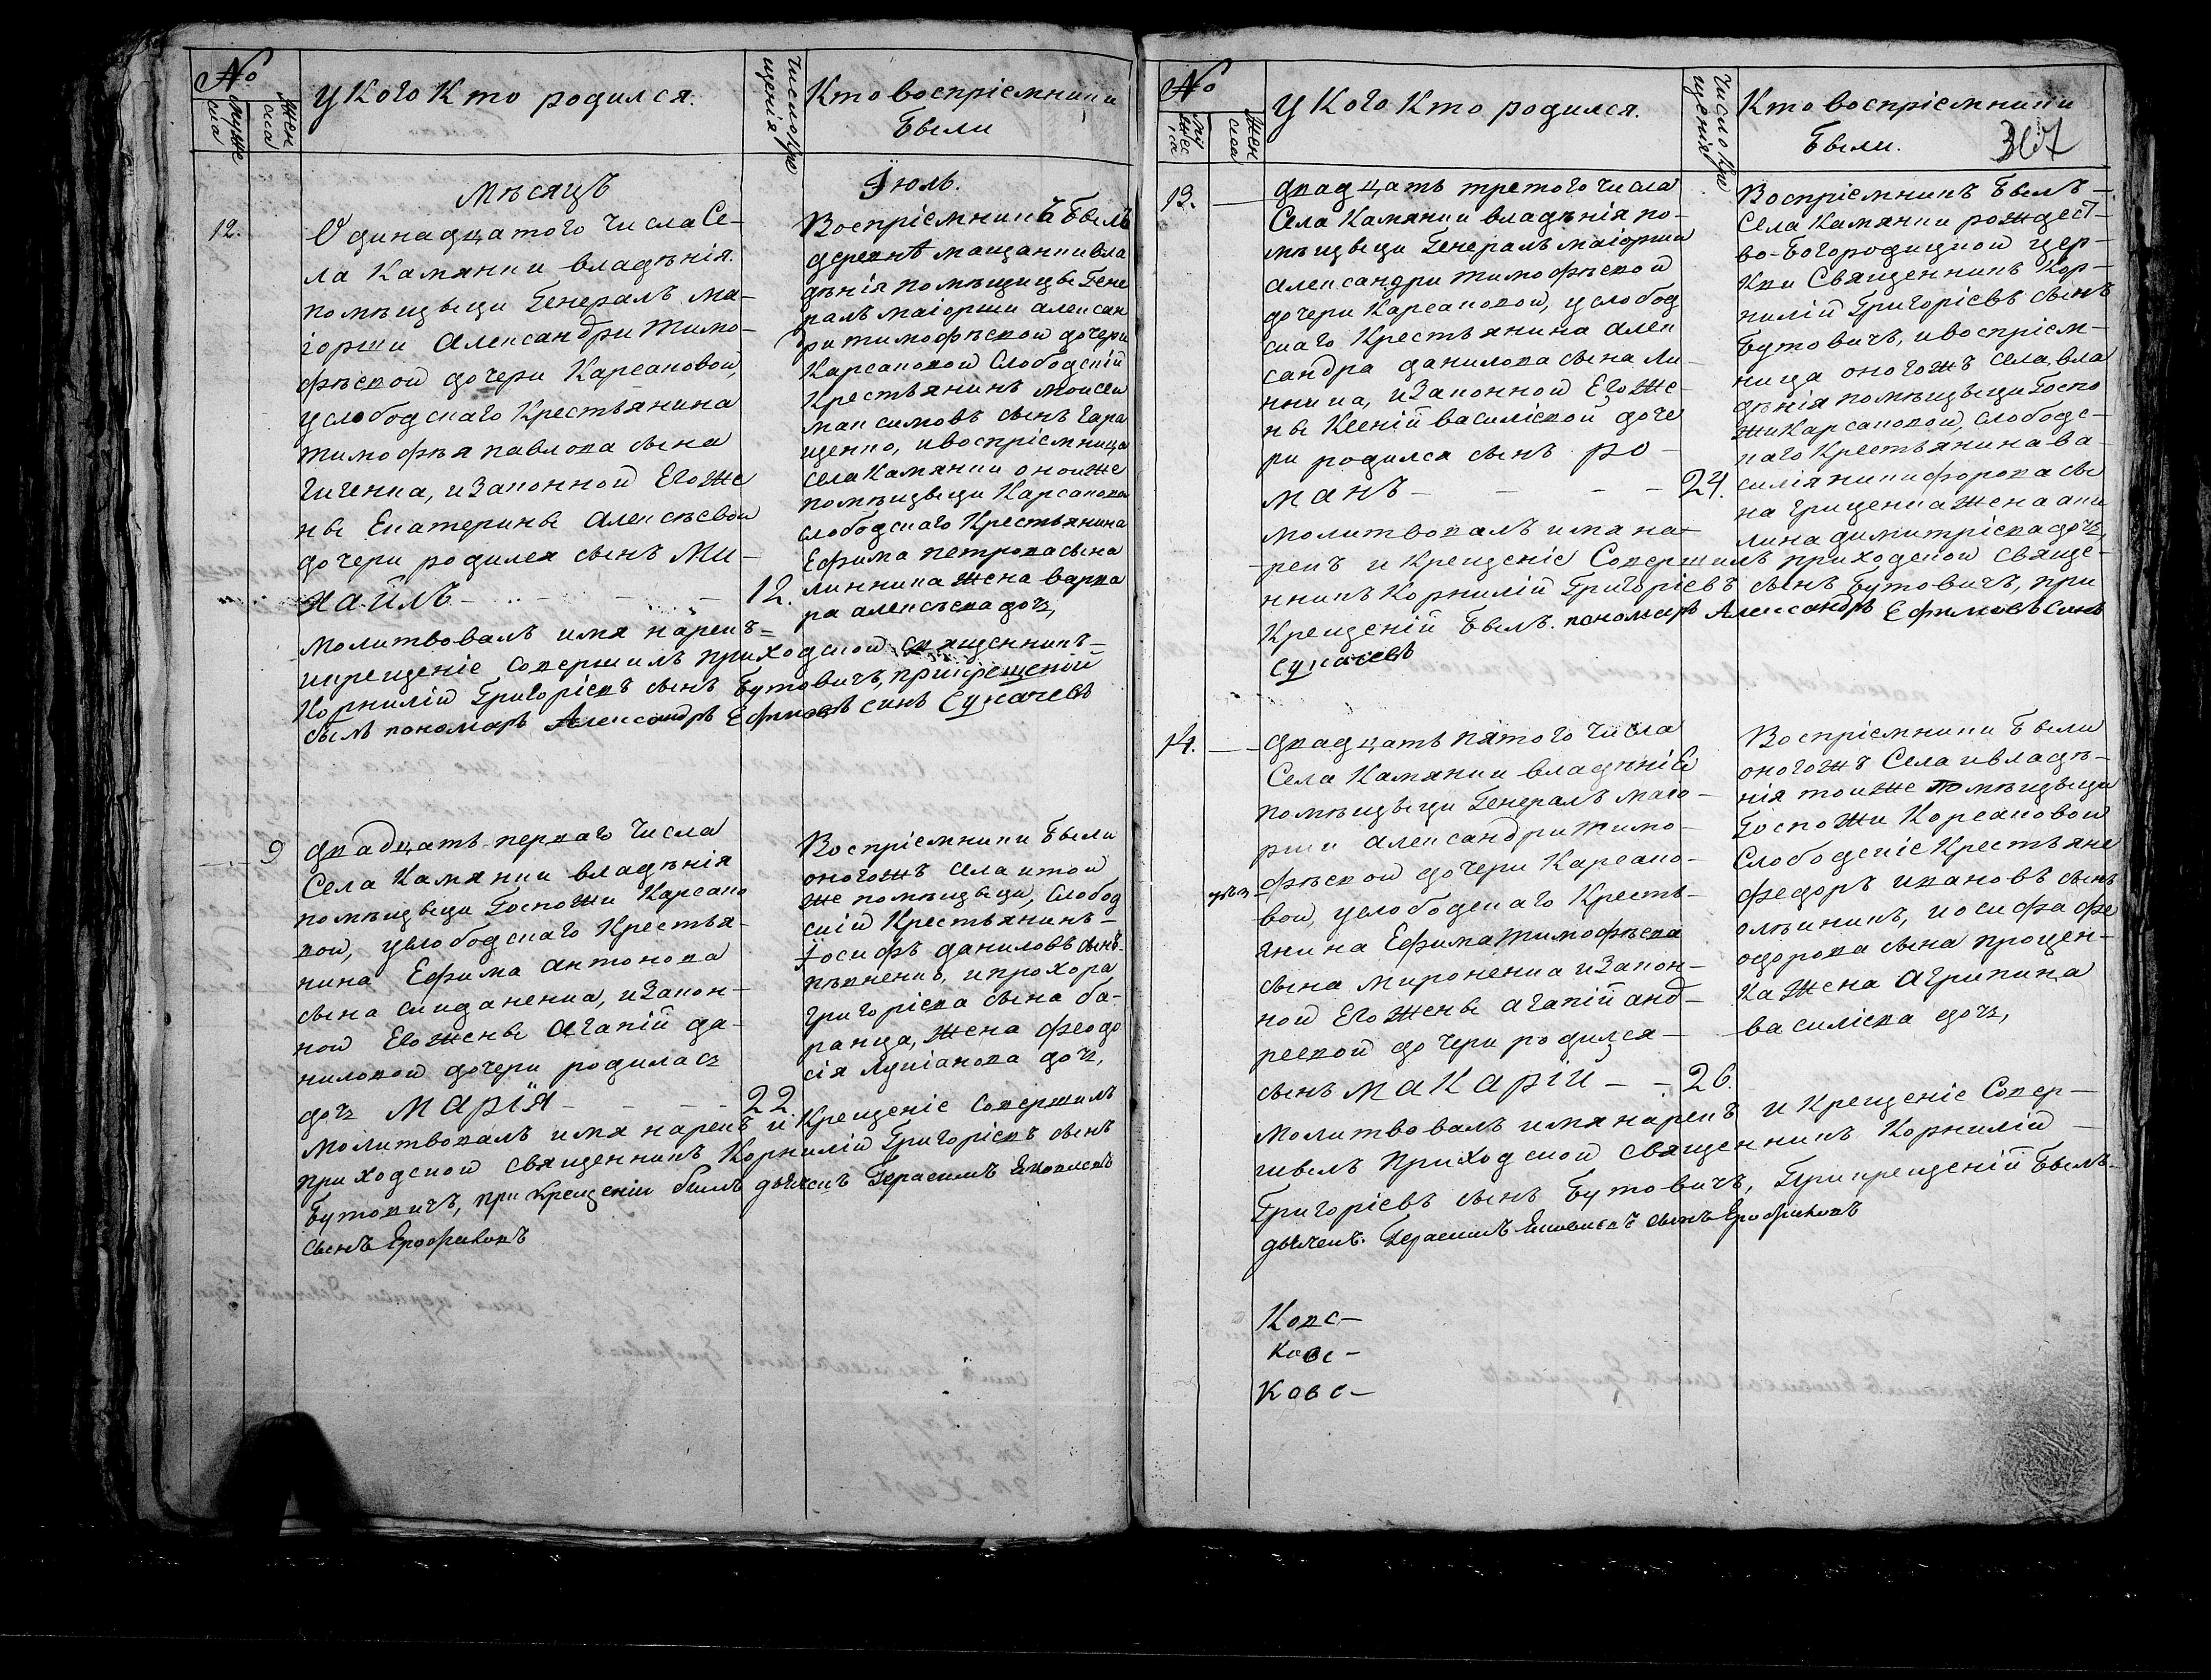 №
мужеска
женска
У Кого Кто родился.
Число Крещенія
Кто воспріемники
Были
Мѣсяцъ
Іюль.
12.
Одинадцатого Числа Се-
ла Камянки владѣнія
помѣщыци Генералъ ма-
іорши Александри Тимо-
фѣевой дочери Карсаковой,
услободскаго Крестьянина
Тимофѣя павлова сына
, изаконной Егоже
ны Екатерины Алексѣевой
дочери родился сынъ Ми-
хайлъ - - - 12.
молитвовалъ имя нарекъ=
икрещеніе совершилъ приходской священникъ=
Корнилій Григоріевъ сынъ Бутовичъ, прикрещеній
былъ пономарь Александръ Ефимовъ синъ Сукачевъ
Воспріемникъ Былъ
деревнѣ мащанкивла
дѣнія помѣщицы Гене
ралъ маіорши алексан
ри тимофѣевой дочери
Карсаковой Слободскій
Крестьянинъ моисей
максимовъ сынъ Гара
щенко, ивоспріемница
села Камянки оноиже
помѣщыци Карсаковой
слободскаго Крестьянина
Ефима петрова сына
линника жена варва
ра алексѣева дочь,
9
двадцать перваго Числа
Села Камянки владѣнія
помѣщыци Госпожи Карсако
вой, услободскаго Крестья-
нина Ефима Антонова
сына скиданенка, изакон-
ной Егоженѣ Агапій да-
ниловой дочери родилась
дочь Марія - - - 22.
молитвовалъ имя нарекъ и Крещеніе совершилъ
приходской священникъ Корнилій Григоріевъ сынъ
Бутовичъ, при крещеніи былъ дьячекъ Герасимъ Яковлевъ
сынъ Ерофиевъ
Воспріемники Были
оногожъ села итой
же помѣщыци, Слобод
скій Крестьянинъ-
Іосифъ даниловъ сынъ
, ипрохора
григоріева сына ба-
ранца, жена феодо
сія Лукіанова дочь,
№
мужеска
женска
У Кого Кто родился.
Число Крещенія
Кто воспріемники
Были.
367
13.
двадцать третого Числа
Села Камянки владѣнія по-
мѣщыци Генералъ маіорши
Александри тимофѣевой
дочери Карсаковой, услобод
скаго Крестьянина Алек
сандра данилова сына ли
нника, изаконной Егоже-
ны Ксеній василіевой доче
ри родился сынъ Ро-
манъ - - - 24.
молитвовалъ имя на-
рекъ и Крещеніе Совершилъ приходской Свяще-
нникъ Корнилій Григоріевъ сынъ Бутовичъ, при
Крещеній Былъ. пономарь Александръ Ефимовъ синъ
Сукачевъ
Воспріемникъ Былъ-
Села Камянки рождест-
во-Богородицкой цер-
Кви Священникъ Кор-
нилій Григоріевъ сынъ
Бутовичъ, ивоспріем-
ница оногожъ села вла
дѣнія помѣщыци Госпо
жи Карсаковой, слободс-
каго Крестьянина ва-
силія никифорова сы
на Гриценка жена аки
лина димитріева дочь,
14.
двадцать пятого Числа
Села Камянки владѣній
помѣщыци Генералъ маіо-
рши Александри Тимо-
фѣевой дочери Карсако-
вой, услободскаго Кресть-
янина Ефима Тимофѣева
сына мироненка изакон-
ной Егоженѣ агапій анд-
реевой дочери родился-
сынъ Макарій - - 26.
молитвовалъ имя нарекъ и Крещеніе Совер-
шивъ приходской священникъ Корнилій
Григоріевъ сынъ Бутовичъ, Прикрещеній Былъ-
дьячекъ. Герасимъ Яковлевъ сынъ Ерофиевъ
Воспріемники Были
оногожъ Села ивладѣ-
нія тоиже помѣщыци
Госпожи Корсаковой
Слободскіе Крестьяне
федоръ ивановъ сынъ
олѣйникъ, иосифа фе
одорова сына процен-
ка жена Агрипина
василіева дочь,
Ковс-
Ковс-
Ковс-